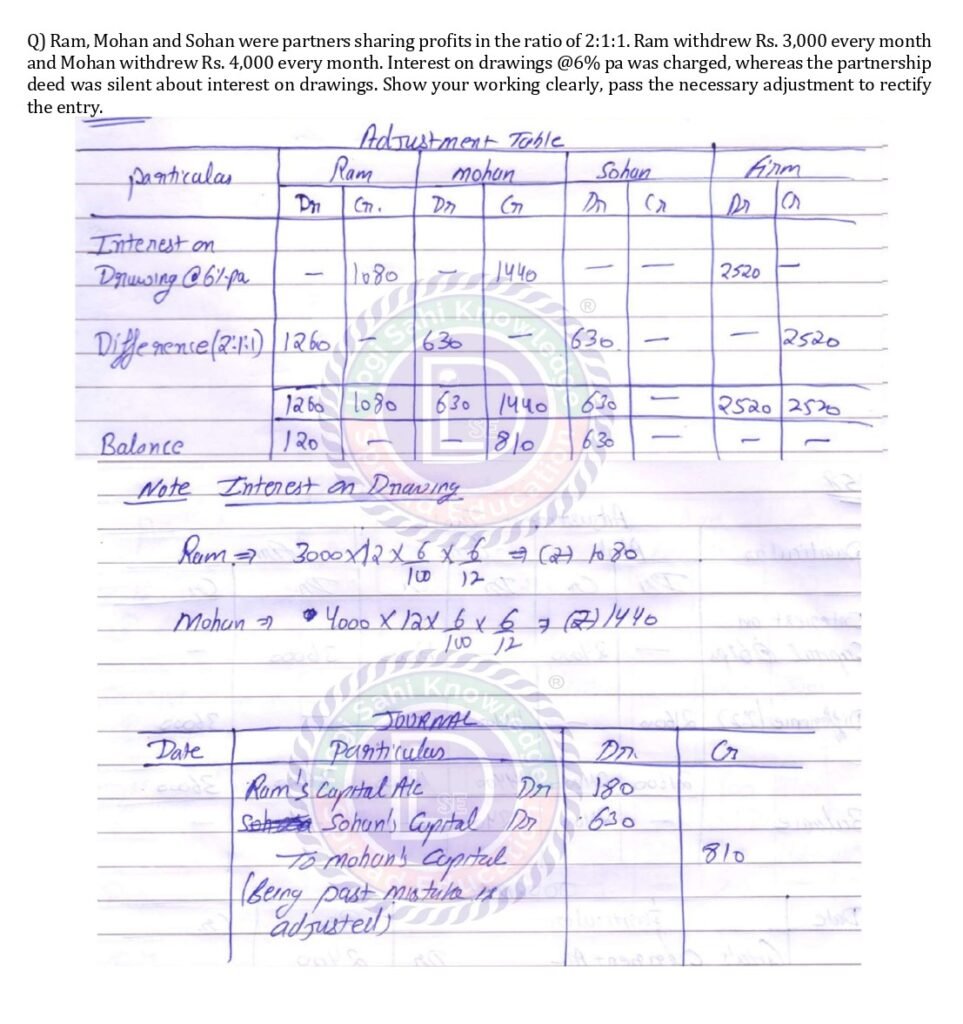 Q) Ram, Mohan and Sohan were partners sharing profits in the ratio of 2:1:1. Ram withdrew Rs. 3,000 every month
and Mohan withdrew Rs. 4,000 every month. Interest on drawings @6% pa was charged, whereas the partnership
deed was silent about interest on drawings. Show your working clearly, pass the necessary adjustment to rectify
the entry.
Adjustment Table
Particulas Ram Mohan Sohan firm
Dr Cr. Dr Cr Dr Cr Dr Cr
Interest on
Drawing @6%pa - 1080 - 1440 - - 2520 -
Difference(2:1:1) 1260 - 630 - 630 - - 2520
1260 1080 630 1440 630 - 2520 2520
Balance 120 - - 810 630 - - -
Note Interest on Drawing
Ram ⇒ 3000x12 x 6/100 x 6/12 ⇒ 1080
Mohan ⇒ 4000 x 12 x 6/100 x 6/12 ⇒ 1440
JOURNAL
Date Particulas Dr. Cr
Ram's Capital A/c Dr 180
Sohan's Capital Dr 630
To Mohan's Capital 810
(Being past mistake is
adjusted)